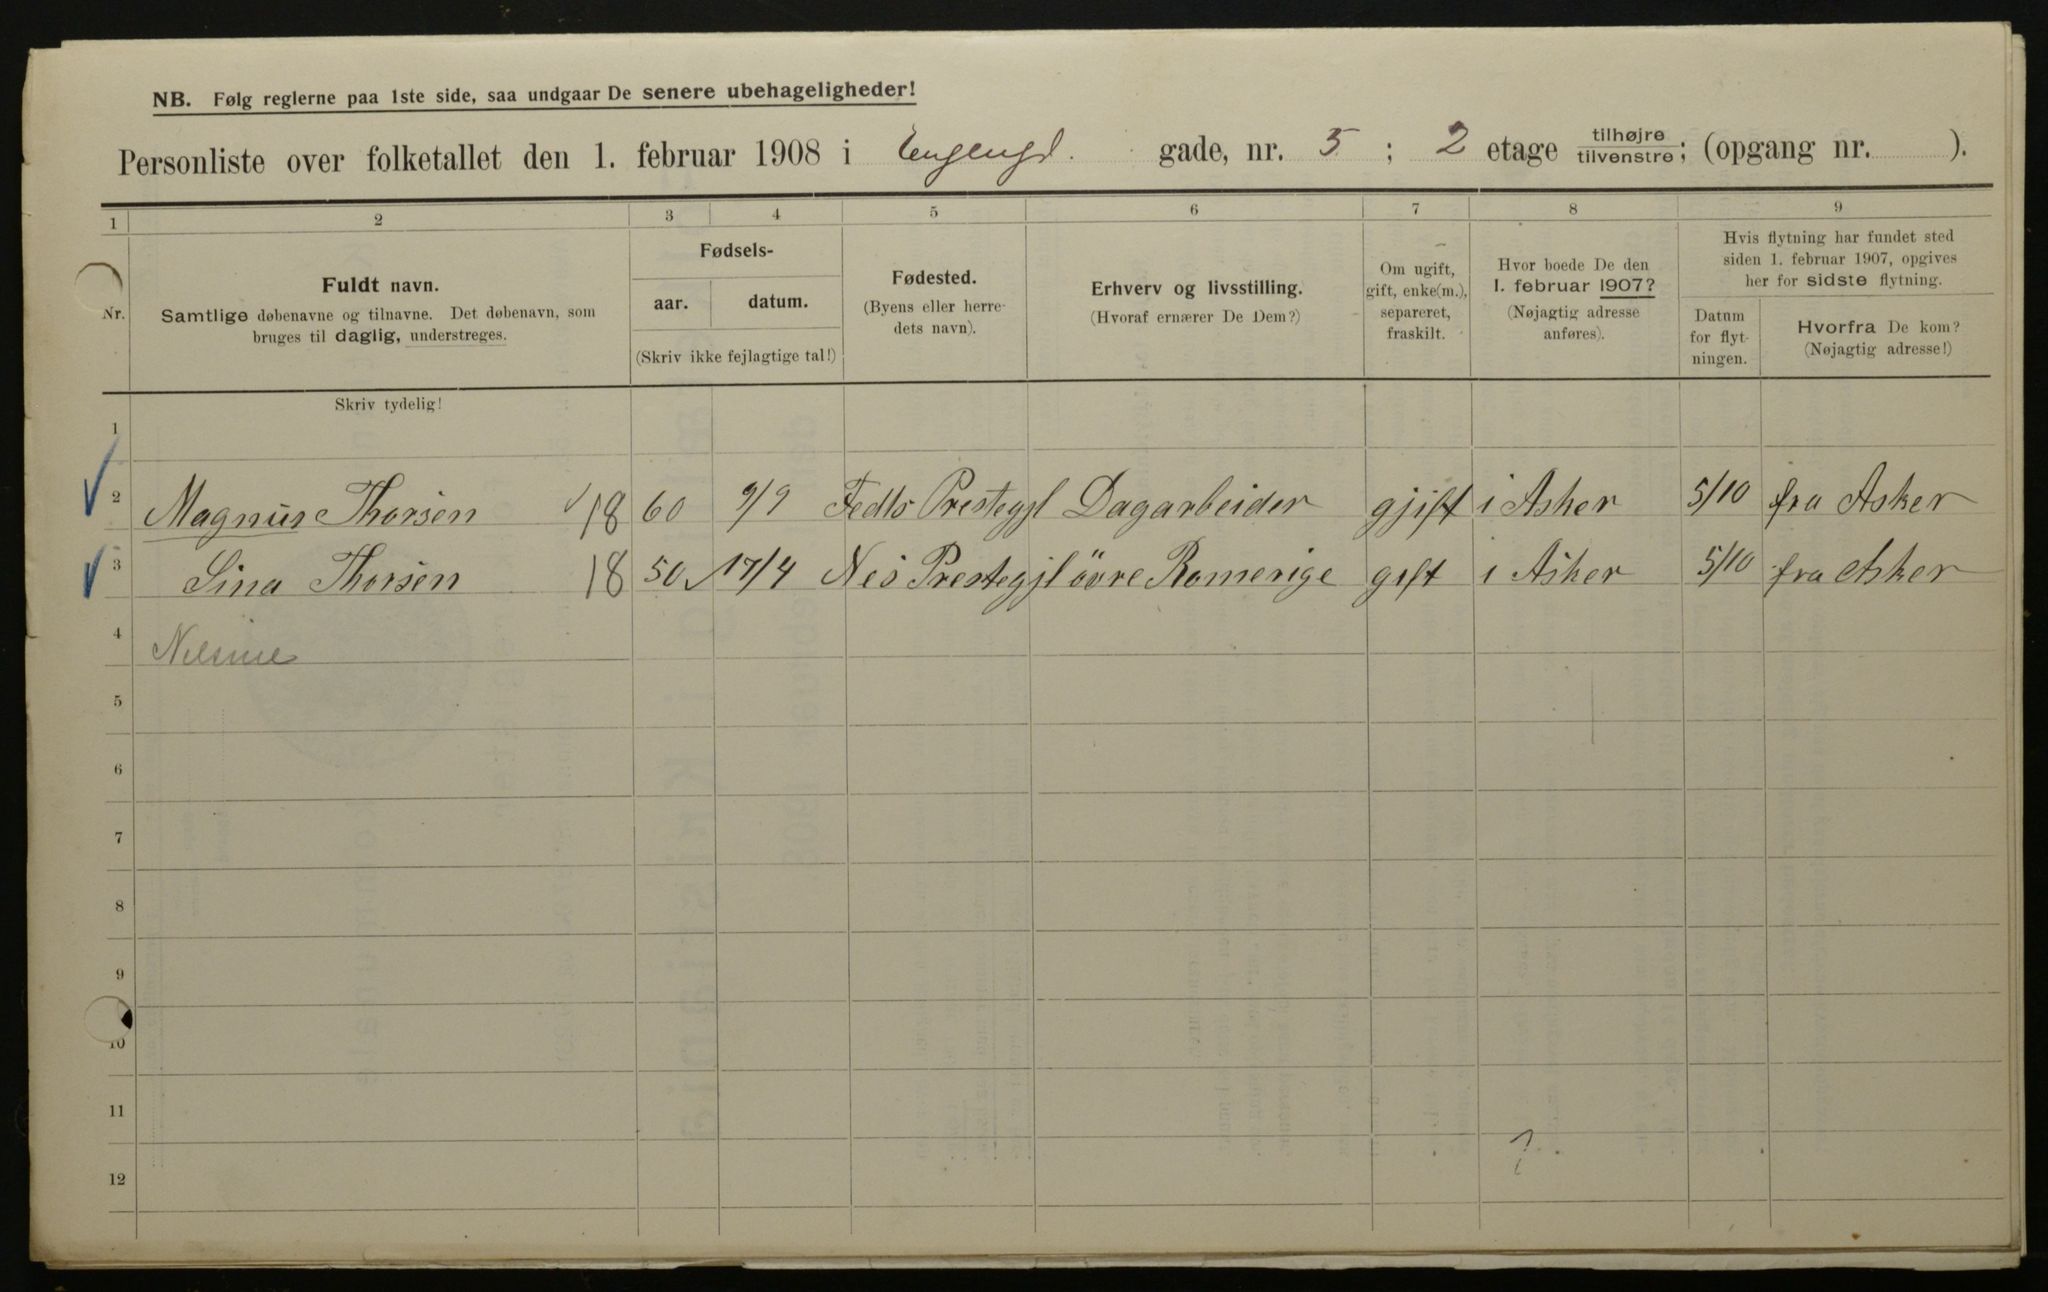 NB. Følg reglerne paa 1ste side, saa undgaar De senere ubehageligheder!
Personliste over folketallet den 1. februar 1908 i Engengd. gade, nr. 5; 2 etage tilhøjre tilvenstre; (opgang nr. ).
1 2 3 4 5 6 7 8 9
Nr.
Fuldt navn.
Samtlige døbenavne og tilnavne. Det døbenavn, som
bruges til daglig, understreges.
Fødsels-
aar. datum.
(Skriv ikke fejlagtige tal!)
Fødested.
(Byens eller herre-
dets navn).
Erhverv og livsstilling.
(Hvoraf ernærer De Dem?)
Om ugift,
gift, enke(m.),
separeret,
fraskilt.
Hvor boede De den
1. februar 1907?
(Nøjagtig adresse
anføres).
Hvis flytning har fundet sted
siden 1. februar 1907, opgives
her for sidste flytning.
Datum
for flyt-
ningen.
Hvorfra De kom?
(Nøjagtig adresse!)
Skriv tydelig!
1
2 Magnus Thorsen 18 60 9/9 Prestegjl Dagarbeider gjift i Asker 5/10 fra Asker
3 Lina Thorsen 18 50 17/4 Nes Prestegjl övre Romerige gift i Asker 5/10 fra Asker
4 Nilsine
5
6
7
8
9
10
11
12
?